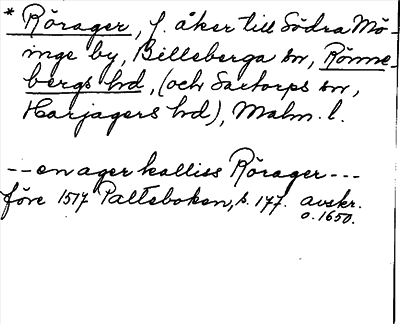 * Rörager, f. åker till Södra Mö-
inge by, Billeberga sn, Rönne-
bergs hd, (och Saxtorps sn,
Harjagers hd), Malm. l.
-- en ager kalliss Rörager ---
före 1517 Palteboken, s. 177. avskr.
o. 1650.